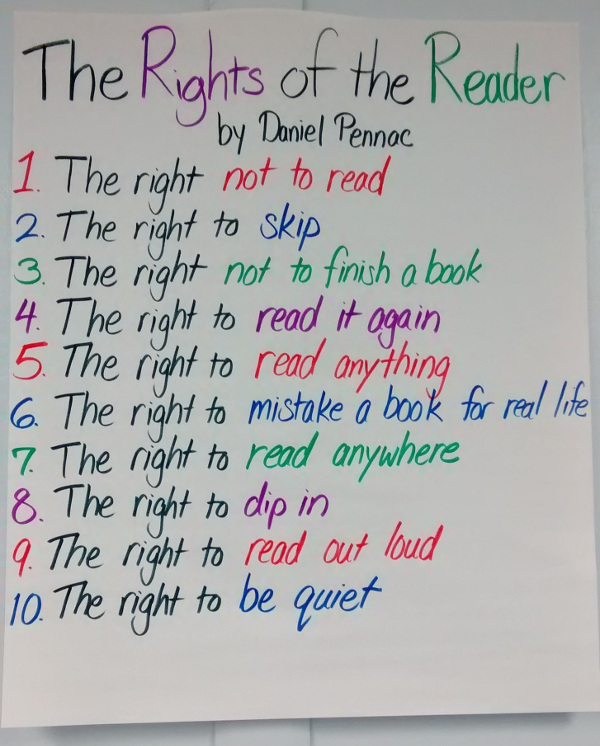 The Rights of the Reader
by Daniel Pennac
1. The right not to read
2. The right to skip
3. The right not to finish a book
4. The right to read it again
5. The right to read anything
6. The right to mistake a book for real life
7. The right to read anywhere
8. The right to dip in
9. The right to read out loud
10. The right to be quiet